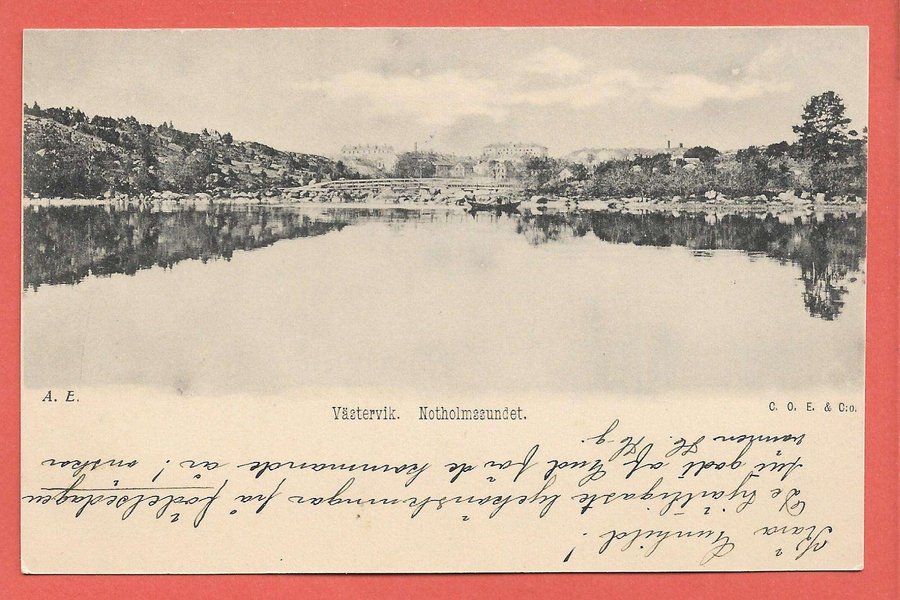 A. E.
Västervik. Notholmssundet.
C. O. E. & C:o.
Kära Gunhild!
De hjärtligaste lyckönskningar på födelsedagen
godt af Gud för de kommande år! önskar
vännen